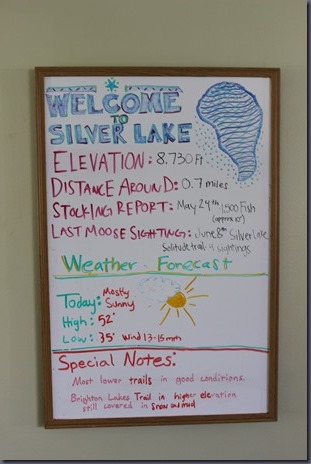 WELCOME
TO
SILVER LAKE
ELEVATION: 8,730 Ft
DISTANCE AROUND: 0.7 miles
STOCKING REPORT: May 24th 1,500 Fish
(approx 10")
LAST MOOSE SIGHTING: June 8th Silver Lake
Solitude trail - 4 sightings
Weather Forecast
Today: Mostly
Sunny
High: 52°
Low: 35° Wind 13-15 mph
Special Notes:
Most lower trails in good conditions.
Brighton Lakes Trail in higher elevation
still covered in snow and mud